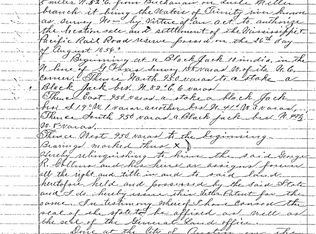 5 miles N. 82 E. from Buchanan on
branch it being the
as survey No by Virtue of an act to authorize
the location sale and settlement of the Mississippi
Pacific Rail Road reserve passed on the 26th day
of August 1856.
Beginning at a Black Jack 10 in dia, in the
N. line of varas W. of its N. E.
corner. Thence North 950 varas to a stake a
Black Jack brs. N. 82 E. 6 varas
Thence East 950 varas a stake a Black Jack
brs S 19 W. 1 varas another brs N. 41 W. 3 varas
Thence South 950 varas a Black Jack brs.
W. 5 varas.
Thence West 950 varas to the beginning
Bearings marked thus X
Hereby relinquishing to him the said George
R. and his heirs or assigns forever
all the right and title in and to said land
heretofore held and possessed by the said State
and I do hereby issue this Letter Patent for the
same. In testimony whereof I have caused the
seal of the State to be affixed as well as
the seal of the General Land Office.
Done at the City of Austin on the